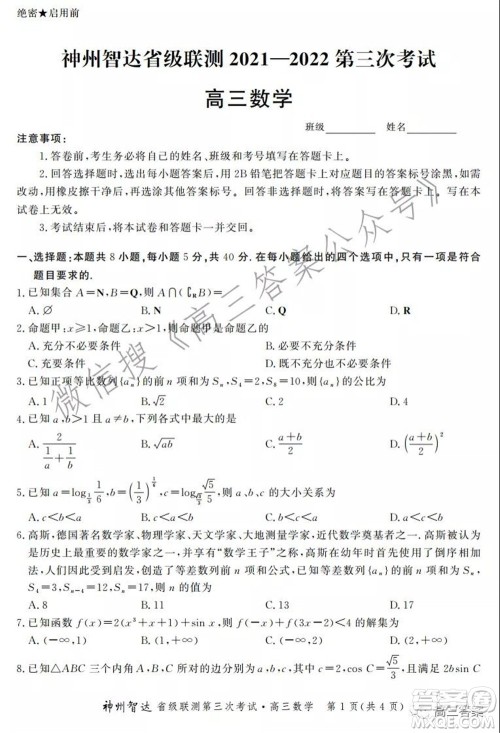 绝密★启用前
神州智达省级联测 2021—2022 第三次考试
高三数学
班级________ 姓名________
注意事项：
1.答卷前，考生务必将自己的姓名、班级和考号填写在答题卡上。
2.回答选择题时，选出答案后，用 2B 铅笔把答题卡上对应题目的答案标号涂黑，如需
改动，用橡皮擦干净后，再选涂其他答案标号。回答非选择题时，将答案写在答题卡上。写在本
试卷上无效。
3.考试结束后，将本试卷和答题卡一并交回。
一、选择题：本题共 8 小题，每小题 5 分，共 40 分。在每小题给出的四个选项中，只有一项是符合
题目要求的.
1.已知集合 A=N，B=Q，则 A∩(∁RB)=
A.∅ B.N C.Q D.R
2.命题甲：x≥1，命题乙：x>1，则命题甲是命题乙的
A.充分不必要条件 B.必要不充分条件
C.充要条件 D.既不充分也不必要条件
3.已知正项等比数列{an}的前 n 项和为 Sn，S4=2，S8=10，则{an}的公比为
A.1 B.√2 C.2 D.4
4.已知 a，b>1 且 a≠b，下列各式中最大的是
A. 2/(1/a+1/b) B.√ab C.(a+b)/2 D.((a+b)/2)²
则 a，b，c 的大小关系为
A.c<b<a B.b<a<c C.b<c<a D.a<b<c
6.高斯，德国著名数学家、物理学家、天文学家、大地测量学家，近代数学奠基者之一.高斯被认
为是历史上最重要的数学家之一，并享有“数学王子”之称，高斯在幼年时首先使用了倒序
相加法，人们因此受到启发，创造了等差数列前 n 项和公式，已知等差数列{an}的前 n 项和为
A.8 B.11 C.13 D.17
7.已知函数 f(x)=2(x³+x)+1，且 f(a)+f(3-2a)<2，则实数 a 的取值范围为
A.(-∞，1) B.(-∞，3) C.(1，+∞) D.(3，+∞)
8.已知△ABC 三个内角 A，B，C 所对的边分别为 a，b，c，其中 cos C=√5/3，且满足 2bsin C=
神州智达 省级联测第三次考试·高三数学 第 1 页(共 4 页)
微信搜《高三答案公众号》
高三答案